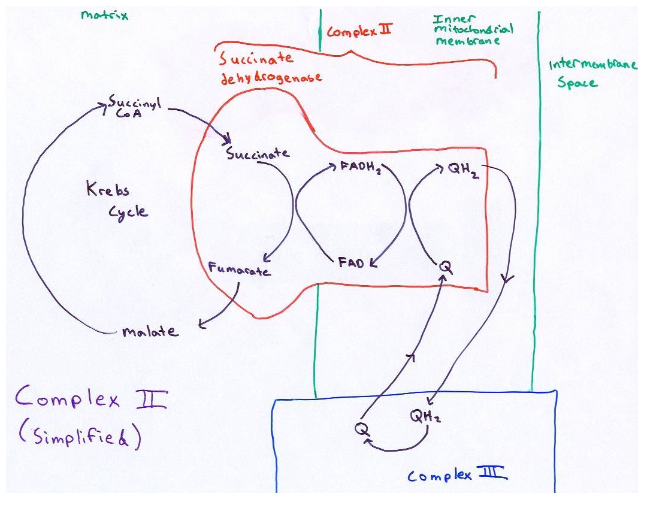 matrix
Complex II
Inner
mitochondrial
membrane
Intermembrane
Space
Succinate
dehydrogenase
Succinyl
CoA
Succinate
FADH₂
QH₂
Krebs
Cycle
Fumarate
FAD
Q
malate
Complex II
(Simplified)
Q
QH₂
Complex III